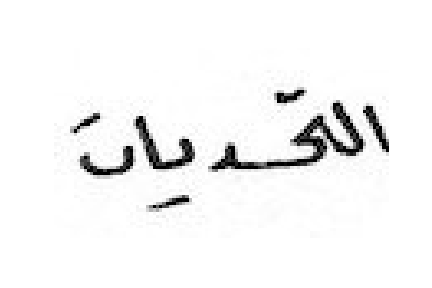 التحديات